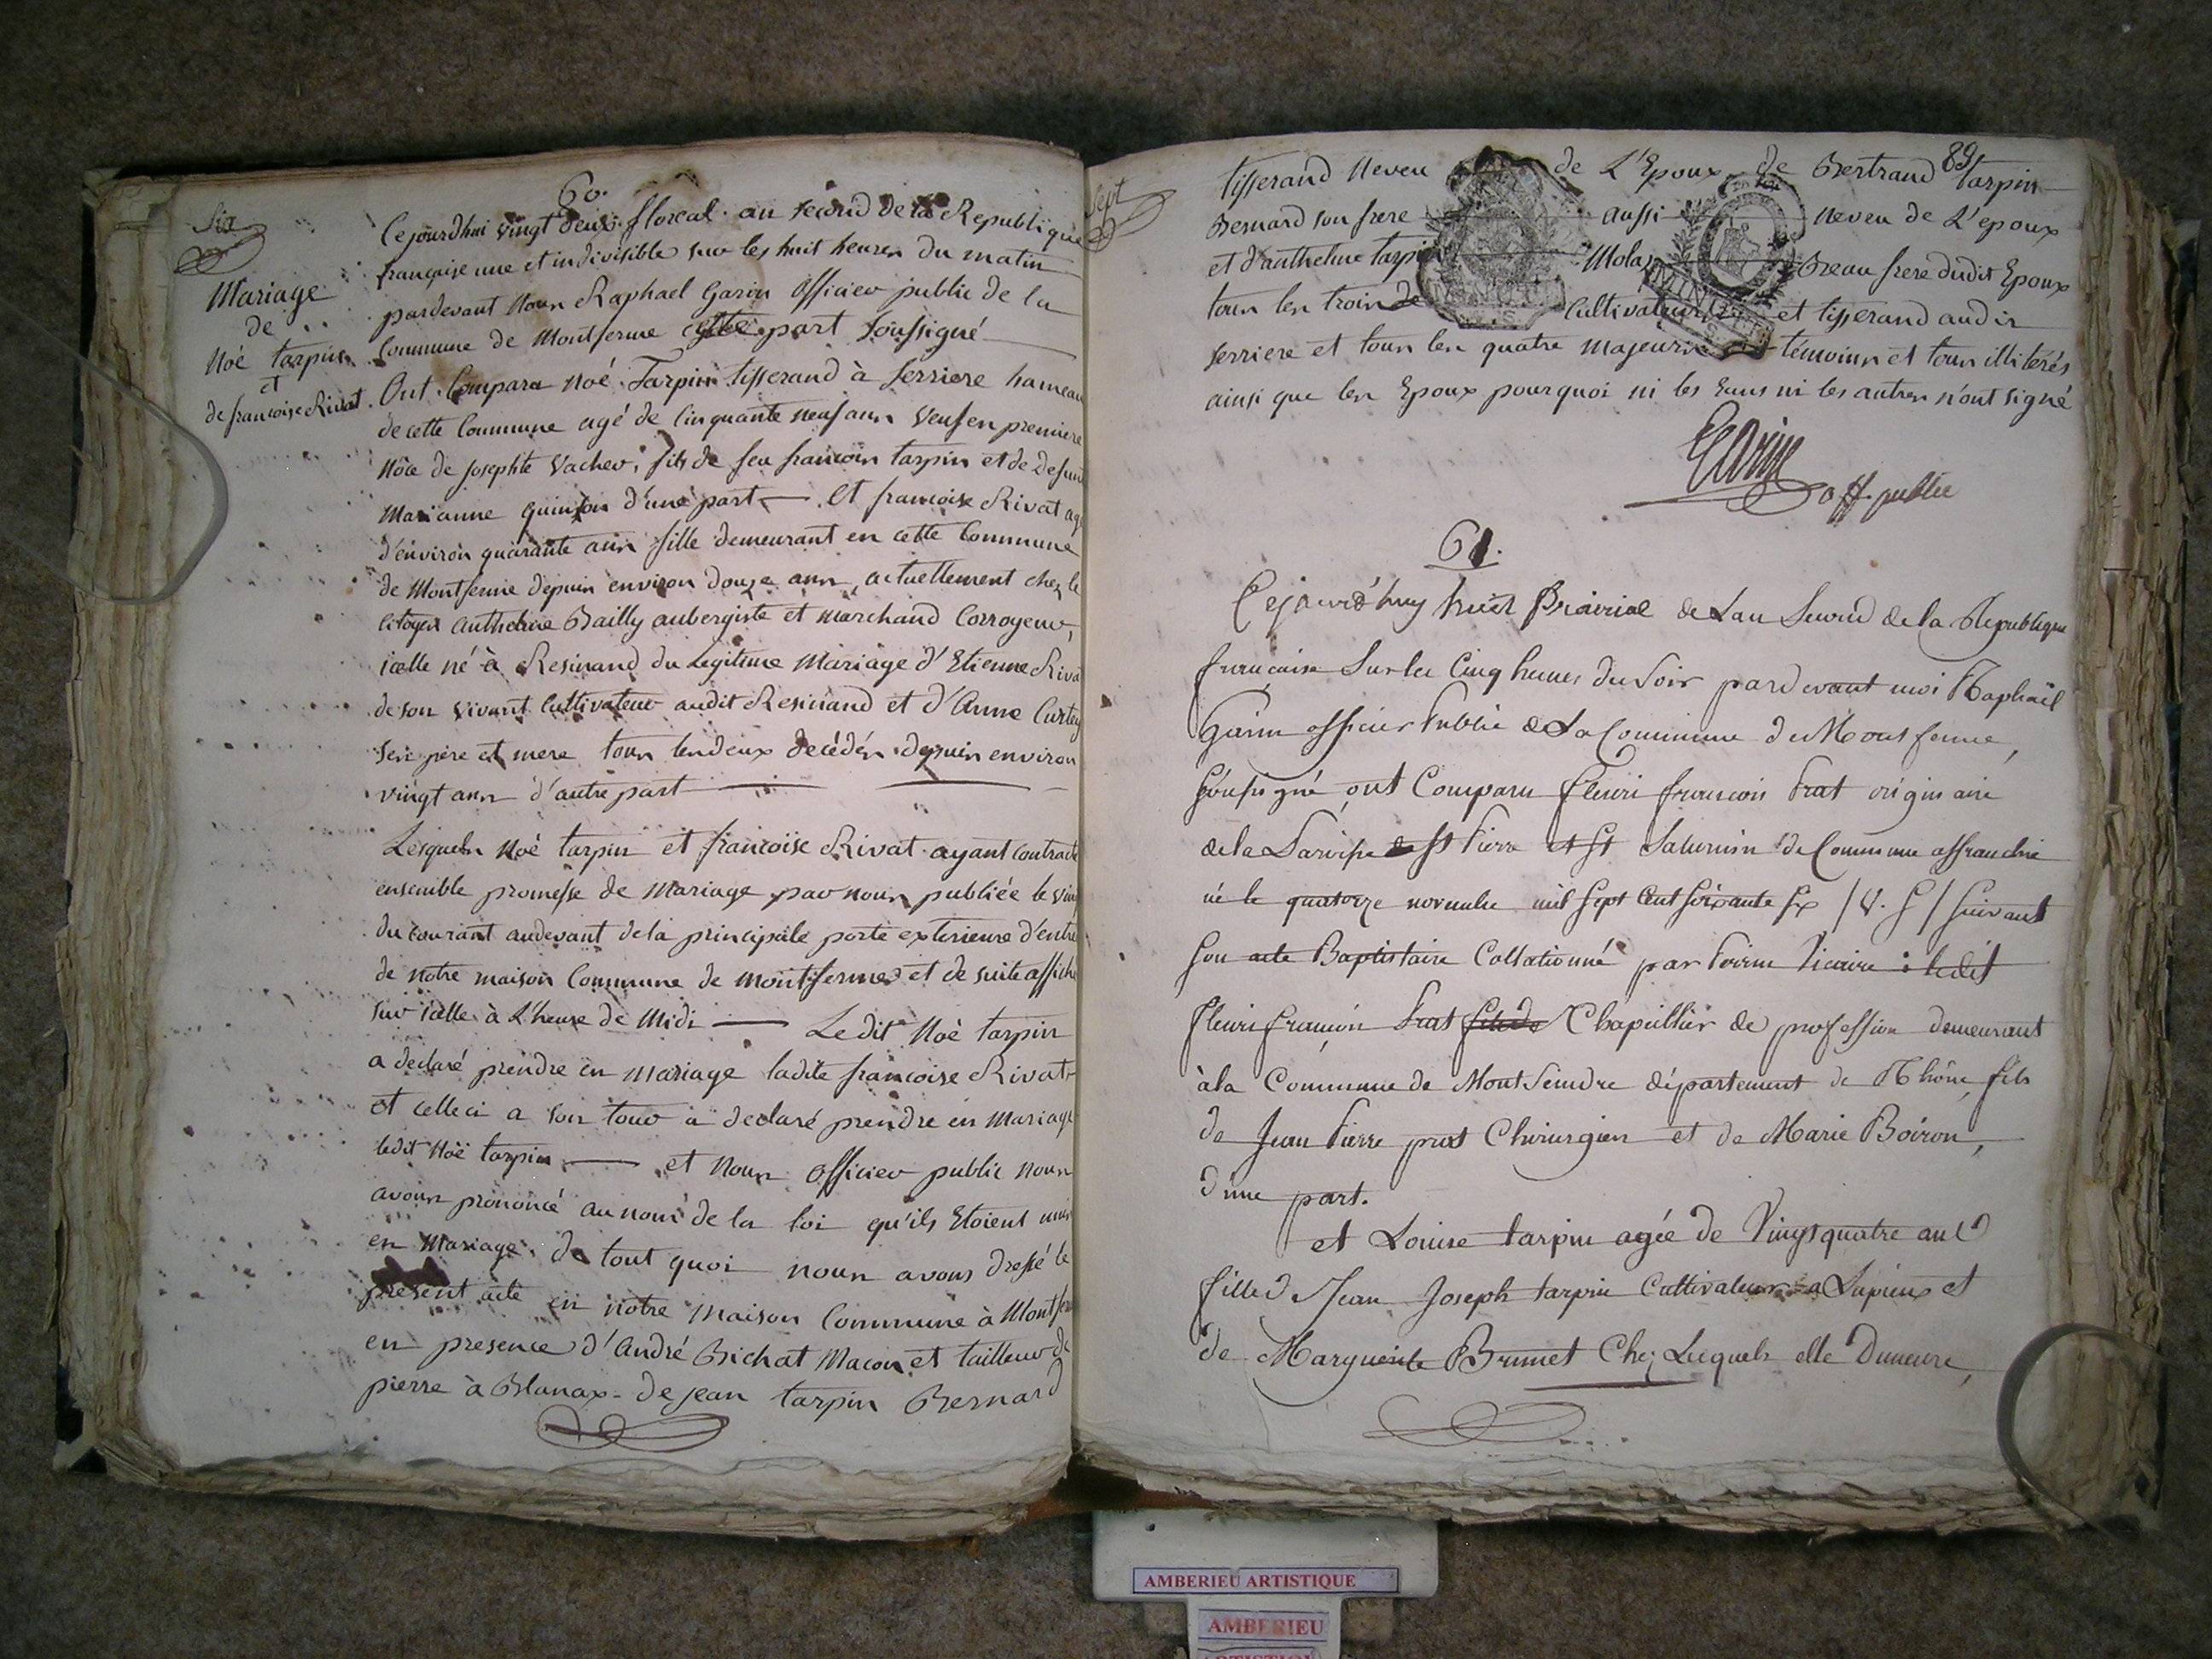 60.
Six
Mariage
de
Noé tarpin
et
de francoise Rivat
Cejourdhui vingt deux floreal an second de la Republique
françoise une et indivisible sur les huit heures du matin
pardevant Nous Raphael Garin Officier public de la
Commune de Montferme soussigné
Ont Comparu Noé Tarpin tisserand à Serriere hameau
de cette Commune agé de cinquante neuf ans veuf en premiere
Nôce de Josephte Vacher, fils de feu francois tarpin et de
Marianne Quinson d'une part — Et francoise Rivat
d'environ quarante ans fille demeurant en cette Commune
de Montferme depuis environ douze ans, actuellement chez le
citoyen Anthelme Bailly aubergiste et marchand Corroyeur,
icelle né à Resinand du Legitime Mariage d'Etienne
de son vivant Cultivateur audit Resinand et d'Anne
ses pere et mere tous les deux decédés depuis environ
vingt ans d'autre part
Lesquels Noé tarpin et francoise Rivat ayant contracté
ensemble promesse de mariage par nous publiée le
du courant audevant de la principale porte exterieure
de notre maison Commune de montferme et de suite
sur icelle à L'heure de Midi — Le dit Noé tarpin
a declaré prendre en mariage ladite francoise Rivat
et celle ci a son tour a declaré prendre en mariage
ledit Noé tarpin — et Nous Officier public nous
avons prononcé au nom de la loi qu'ils Etoient unis
en Mariage. de tout quoi nous avons dressé le
present acte en notre maison Commune à
en presence d'André Bichat Macon et tailleur de
pierre à Blanax - de jean tarpin Bernard
89
Sept
tisserand Neveu de L'Epoux de Bertrand tarpin
Bernard son frere aussi neveu de L'epoux
et d'anthelme Molas Beau frere dudit Epoux
tous les trois Cultivateurs et tisserand audit
serriere et tous les quatre majeurs témoins et tous illiterés
ainsi que les Epoux pourquoi ni les uns ni les autres n'ont signé
Garin
off. public
61.
Cejourd'huy huit Prairial de Lan Second de la Republique
francaise Sur les Cinq heures du Soir pardevant moi Raphaël
Garin officier Public de La Commune de Montferme,
Soussigné ont Comparu fleuri francois Prat originaire
de la Paroisse St Pierre et St Saturnin de Commune affranchie
né le quatorze novembre mil Sept Cent Soixante Six /V. S/ Suivant
Son acte Baptistaire Collationné par Vicaire : ledit
fleuri francois Prat Chapellier de profession demeurant
à la Commune de Mont département de Rhône, fils
de Jean Pierre prat Chirurgien et de Marie Boiron,
d'une part.
et Louise tarpin agée de Vingt quatre ans
fille de Jean Joseph tarpin Cultivateur a Lupieu et
de Marguerite Brunet Chez Lesquels elle Demeure,
AMBERIEU ARTISTIQUE
AMBERIEU
ARTISTIQUE